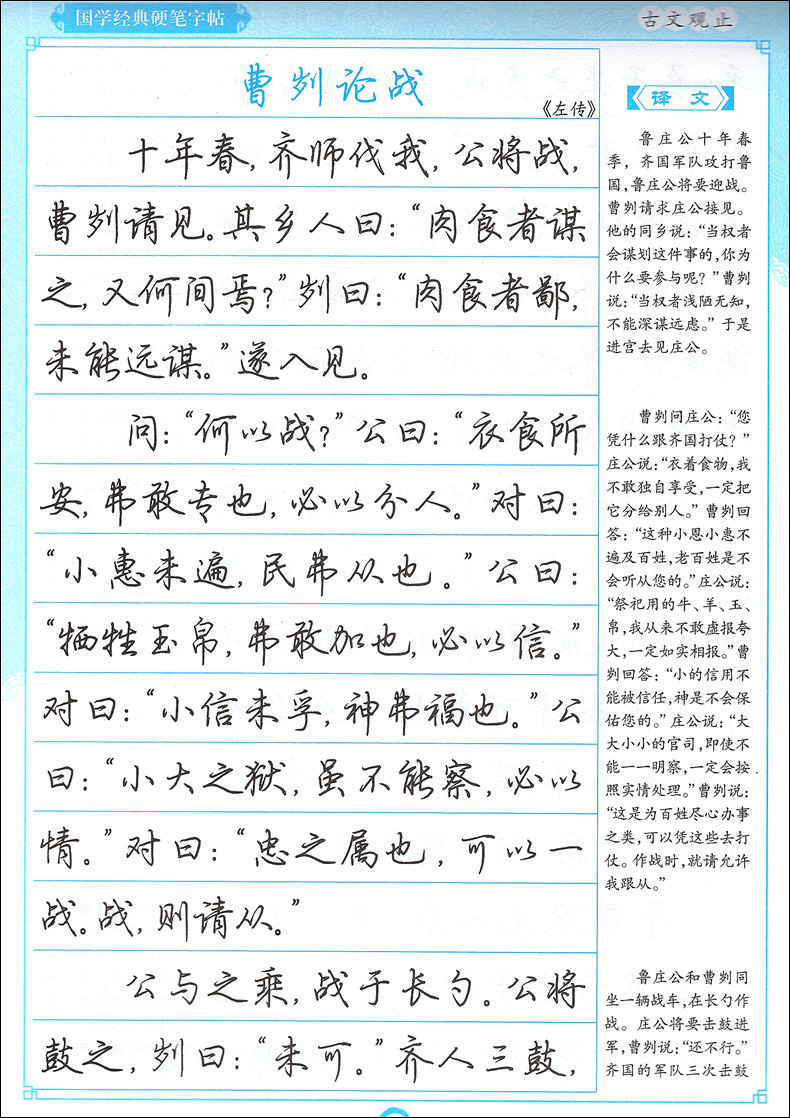 国学经典硬笔字帖
古文观止
曹刿论战
《左传》
十年春，齐师伐我，公将战，
曹刿请见。其乡人曰：“肉食者谋
之，又何间焉？”刿曰：“肉食者鄙，
未能远谋。”遂入见。
问：“何以战？”公曰：“衣食所
安，弗敢专也，必以分人。”对曰：
“小惠未遍，民弗从也。”公曰：
“牺牲玉帛，弗敢加也，必以信。”
对曰：“小信未孚，神弗福也。”公
曰：“小大之狱，虽不能察，必以
情。”对曰：“忠之属也，可以一
战。战，则请从。”
公与之乘，战于长勺。公将
鼓之，刿曰：“未可。”齐人三鼓，
译文
鲁庄公十年春
季，齐国军队攻打鲁
国，鲁庄公将要迎战。
曹刿请求庄公接见。
他的同乡说：“当权者
会谋划这件事的，你为
什么要参与呢？”曹刿
说：“当权者浅陋无知，
不能深谋远虑。”于是
进宫去见庄公。
曹刿问庄公：“您
凭什么跟齐国打仗？”
庄公说：“衣着食物，我
不敢独自享受，一定把
它分给别人。”曹刿回
答：“这种小恩小惠不
遍及百姓，老百姓是不
会听从您的。”庄公说：
“祭祀用的牛、羊、玉、
帛，我从来不敢虚报夸
大，一定如实相报。”曹
刿回答：“小的信用不
能被信任，神是不会保
佑您的。”庄公说：“大
大小小的官司，即使不
能一一明察，一定会按
照实情处理。”曹刿说：
“这是为百姓尽心办事
之类，可以凭这些去打
仗。作战时，就请允许
我跟从。”
鲁庄公和曹刿同
坐一辆战车，在长勺作
战。庄公将要击鼓进
军，曹刿说：“还不行。”
齐国的军队三次击鼓